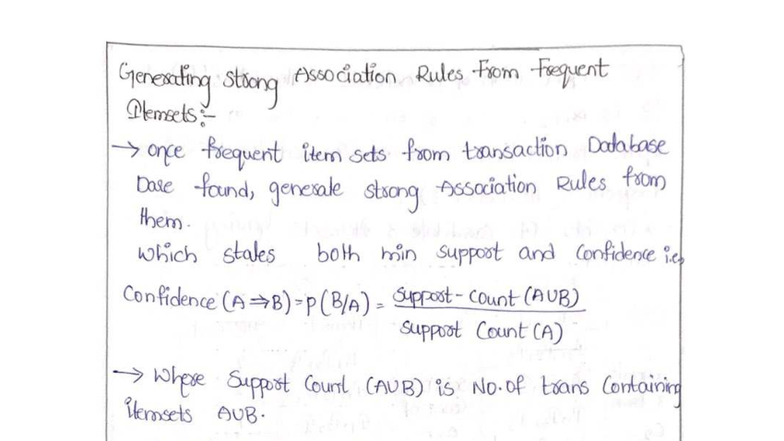 Generating Strong Association Rules From Frequent
Itemsets:-
→ once frequent item sets from transaction Database
Dase found, generate strong Association Rules from
them.
which states both min support and Confidence i.e,
Confidence (A⇒B) = P(B/A) = Support-Count (AUB)
Support Count (A)
→ Where Support Count (AUB) is No. of trans Containing
itemsets AUB.